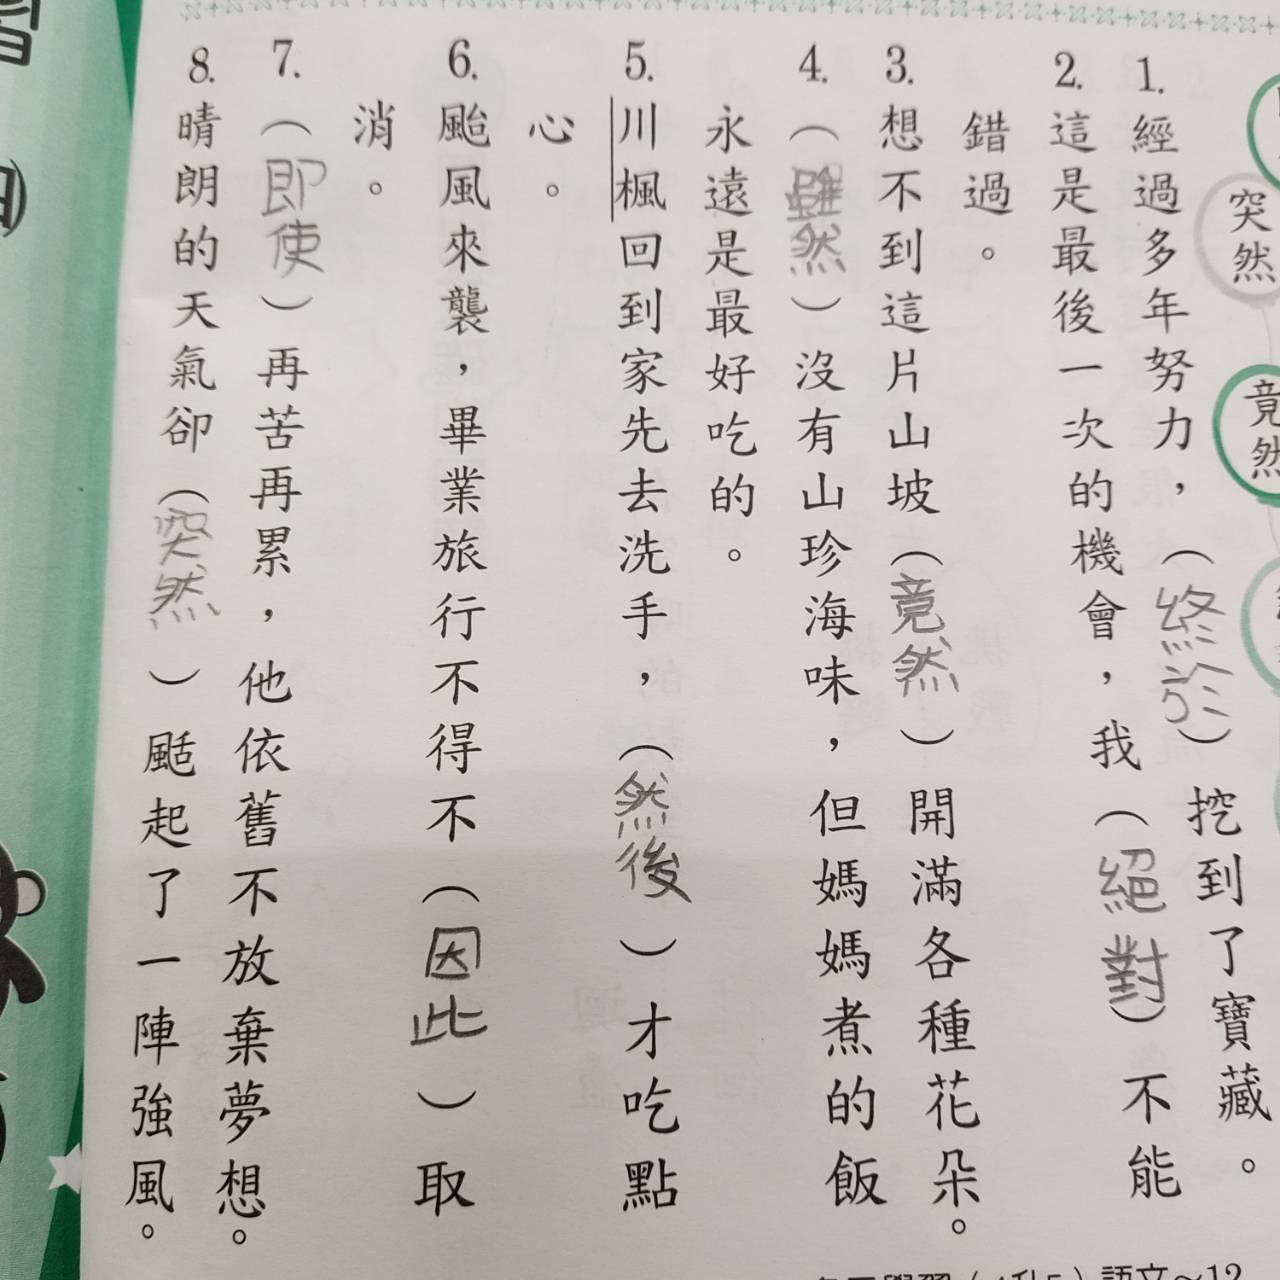 突然
竟然
1. 經過多年努力，（終於）挖到了寶藏。
2. 這是最後一次的機會，我（絕對）不能
錯過。
3. 想不到這片山坡（竟然）開滿各種花朵。
4. （雖然）沒有山珍海味，但媽媽煮的飯
永遠是最好吃的。
5. 川楓回到家先去洗手，（然後）才吃點
心。
6. 颱風來襲，畢業旅行不得不（因此）取
消。
7. （即使）再苦再累，他依舊不放棄夢想。
8. 晴朗的天氣卻（突然）颳起了一陣強風。
語文～12